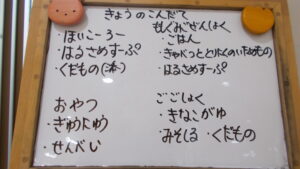 きょうのこんだて
・ほいこーろー
・はるさめすーぷ
・くだもの
おやつ
・ぎゅうにゅう
・せんべい
ごはん
・きゃべつととりにくのいためもの
・はるさめすーぷ
ごごしょく
・きなこがゆ
・みそしる ・くだもの